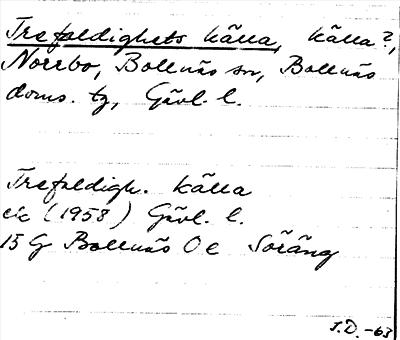 Trefaldighets källa, källa?,
Norrbo, Bollnäs sn, Bollnäs
doms. tg, Gävl. l.
Trefaldigh. källa
ek (1958) Gävl. l.
15 G Bollnäs 0 e Söräng
J.D.-63